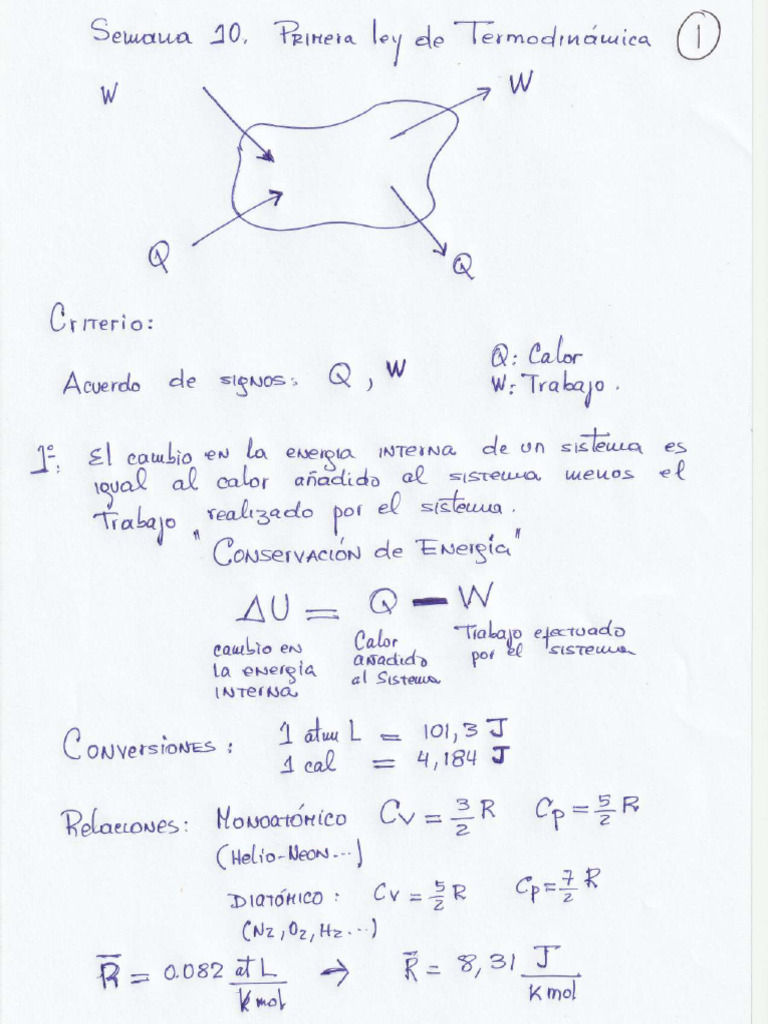 Semana 10. Primera ley de Termodinámica 1
W W
Q Q
Criterio:
Acuerdo de signos: Q, W
Q: Calor
W: Trabajo.
1º: El cambio en la energia interna de un sistema es
igual al calor añadido al sistema menos el
Trabajo realizado por el sistema.
"Conservación de Energía"
ΔU = Q - W
cambio en la energia interna
Calor añadido al Sistema
Trabajo efectuado por el sistema
Conversiones: 1 atm L = 101,3 J
1 cal = 4,184 J
Relaciones: Monoatómico Cv = 3/2 R Cp = 5/2 R
(Helio-Neon...)
Diatómico: Cv = 5/2 R Cp = 7/2 R
(N2, O2, H2...)
R̄ = 0.082 at L / K mol → R̄ = 8,31 J / K mol